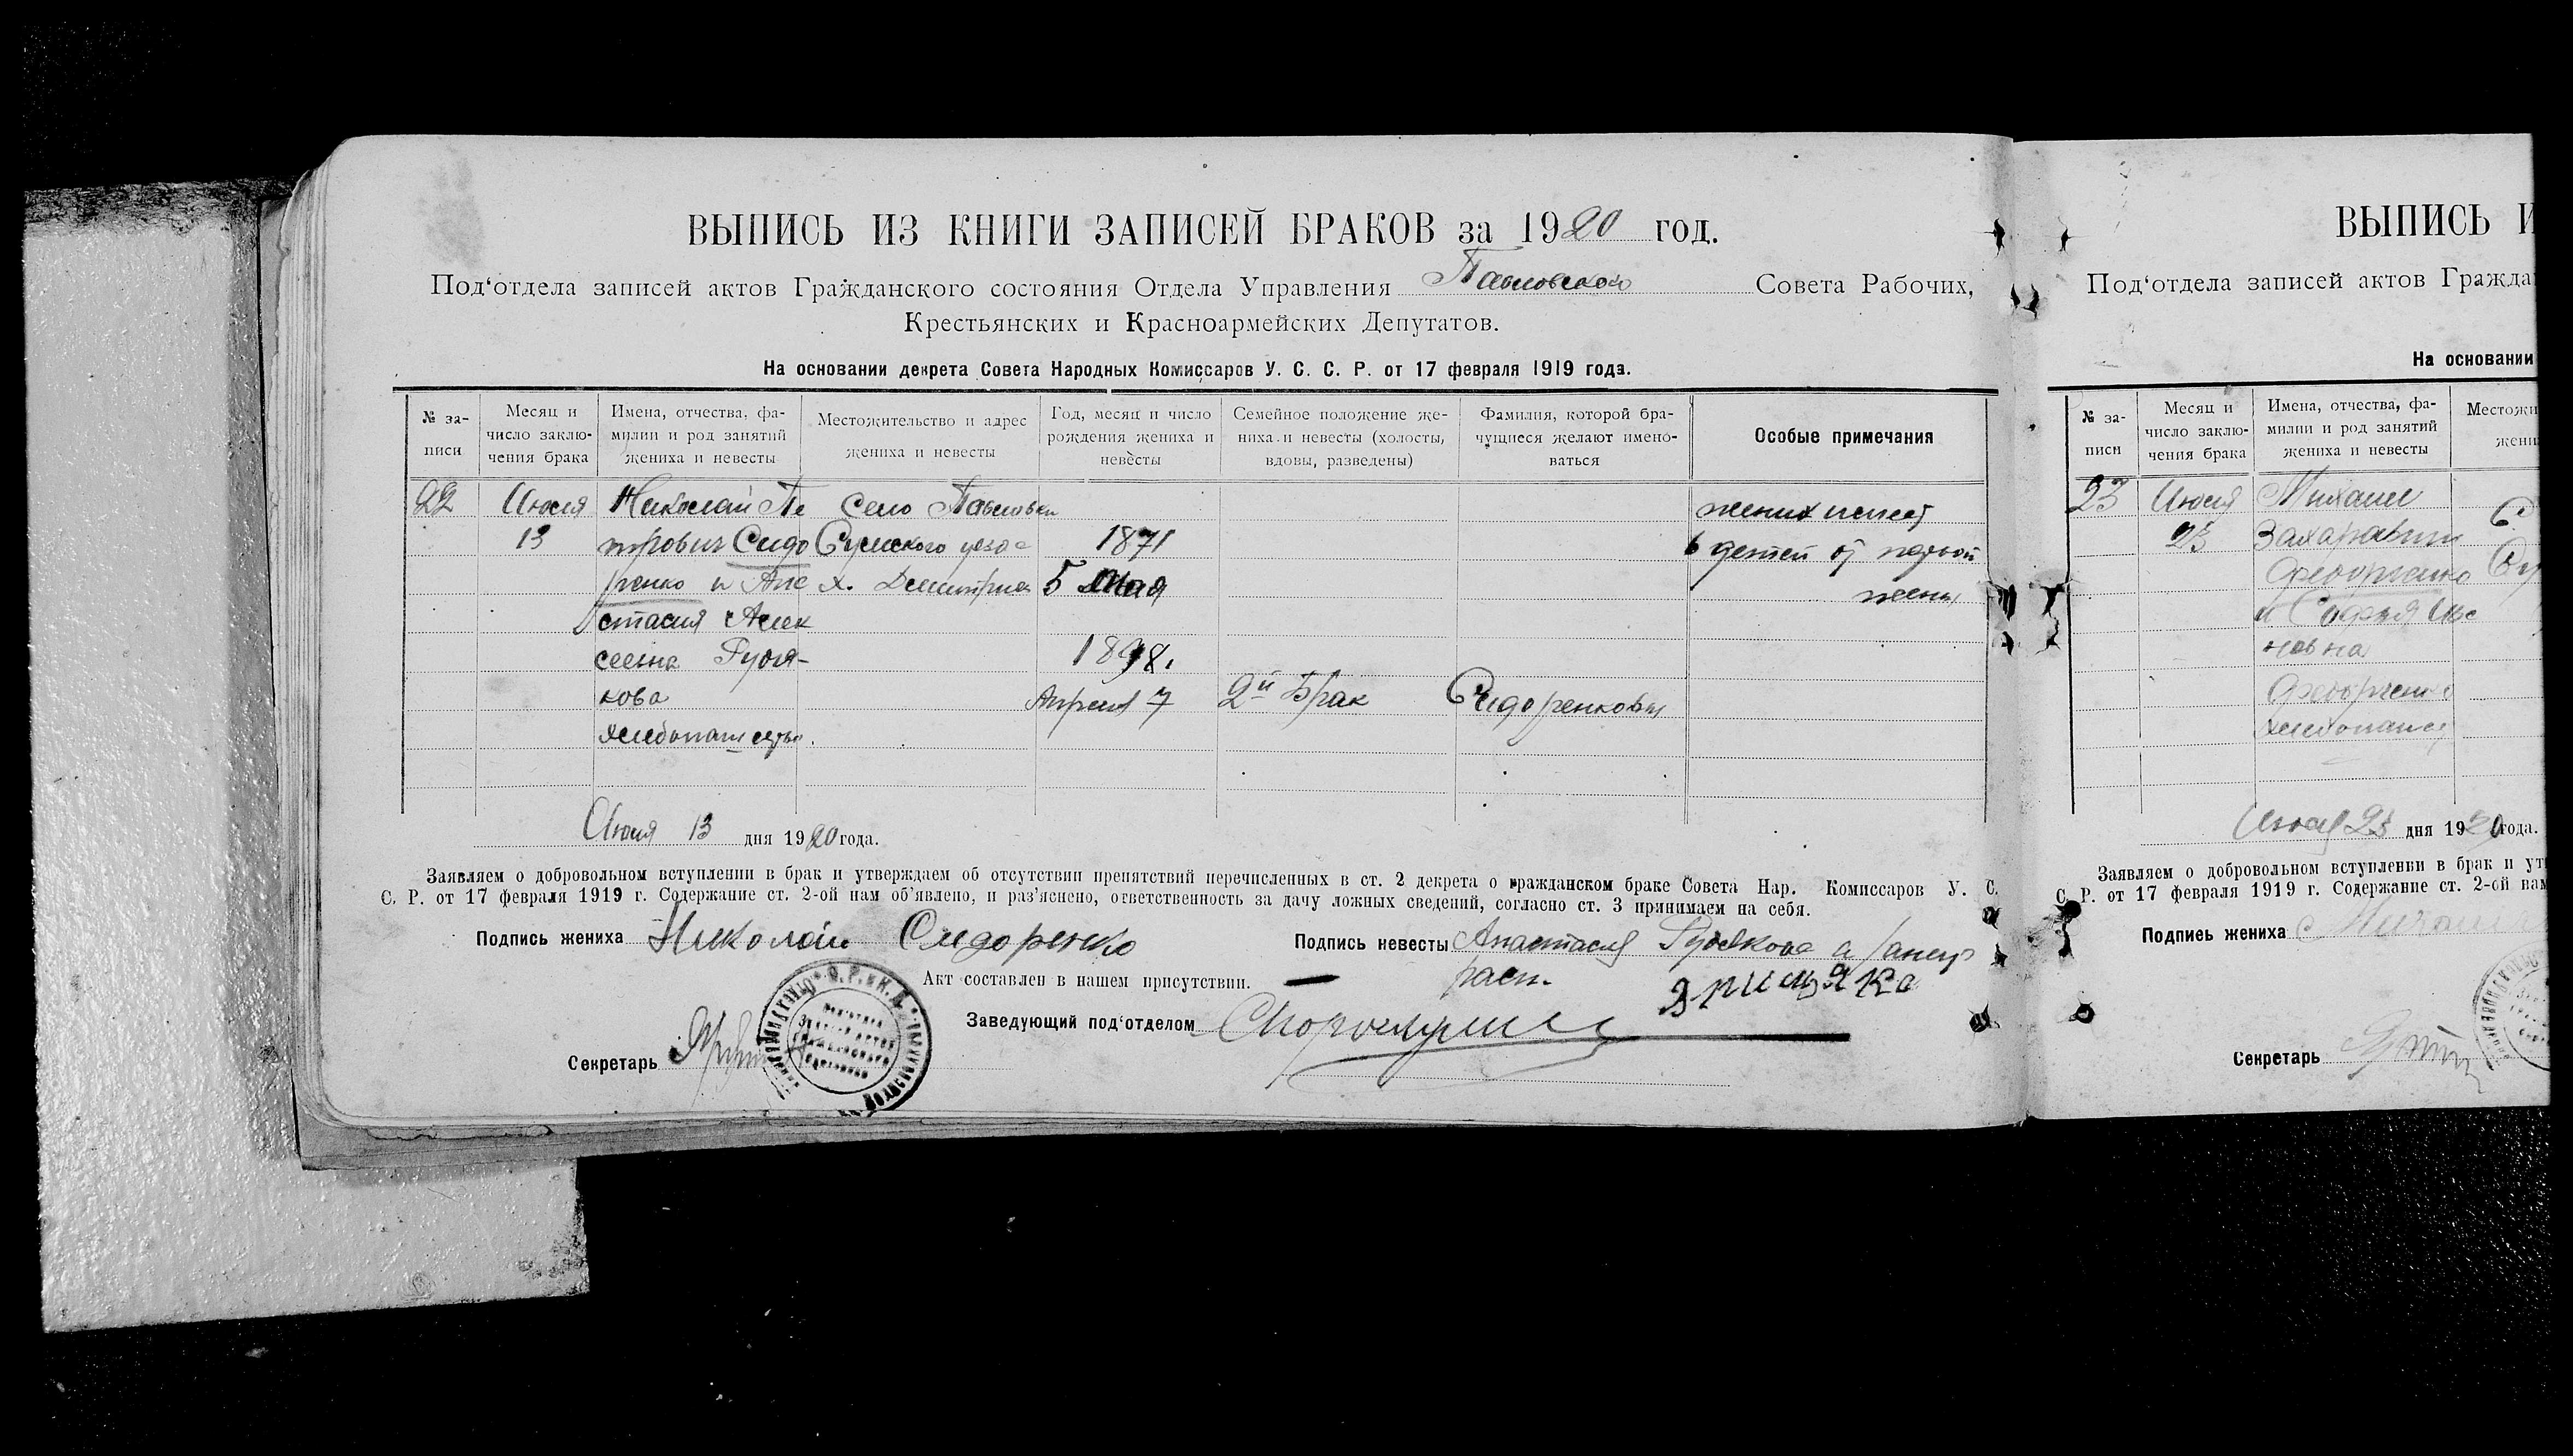 ВЫПИСЬ ИЗ КНИГИ ЗАПИСЕЙ БРАКОВ за 1920 год.
Под‘отдела записей актов Гражданского состояния Отдела Управления Павловской Совета Рабочих,
Крестьянских и Красноармейских Депутатов.
На основании декрета Совета Народных Комиссаров У. С. С. Р. от 17 февраля 1919 года.
№ за-
писи
Месяц и
число заклю-
чения брака
Имена, отчества, фа-
милии и род занятий
жениха и невесты
Местожительство и адрес
жениха и невесты
Год, месяц и число
рождения жениха и
невесты
Семейное положение же-
ниха и невесты (холосты,
вдовы, разведены)
Фамилия, которой бра-
чущиеся желают имено-
ваться
Особые примечания
22
Июля
13
Николай Пе
трович Сидо
ренко и Ана
стасия Алек
сеевна Рудя-
кова
Село Павловки
Сумского уезда
х. Дмитри
1871
5 Мая
1898.
Апреля 7
2й Брак
Сидоренковы
жених имеет
6 детей от первой
жены
Июля 13 дня 1920 года.
Заявляем о добровольном вступлении в брак и утверждаем об отсутствии препятствий перечисленных в ст. 2 декрета о гражданском браке Совета Нар. Комиссаров У. С.
С. Р. от 17 февраля 1919 г. Содержание ст. 2-ой нам об‘явлено, и раз‘яснено, ответственность за дачу ложных сведений, согласно ст. 3 принимаем на себя.
Подпись жениха Николай Сидоренко
Подпись невесты Анастасия Рудякова а
расп.
Акт составлен в нашем присутствии.
Заведующий под‘отделом
Секретарь
ВЫПИСЬ И
Под‘отдела записей актов Гражда
На основании
№ за-
писи
Месяц и
число заклю-
чения брака
Имена, отчества, фа-
милии и род занятий
жениха и невесты
Местожи
жени
23
Июля
23
Михаил
Захарович
Федорченко
и София Ива
новна
Федорченко
Июля 23 дня 1920 года.
Заявляем о добровольном вступлении в брак и ут
С. Р. от 17 февраля 1919 г. Содержание ст. 2-ой нам
Подпись жениха
Секретарь